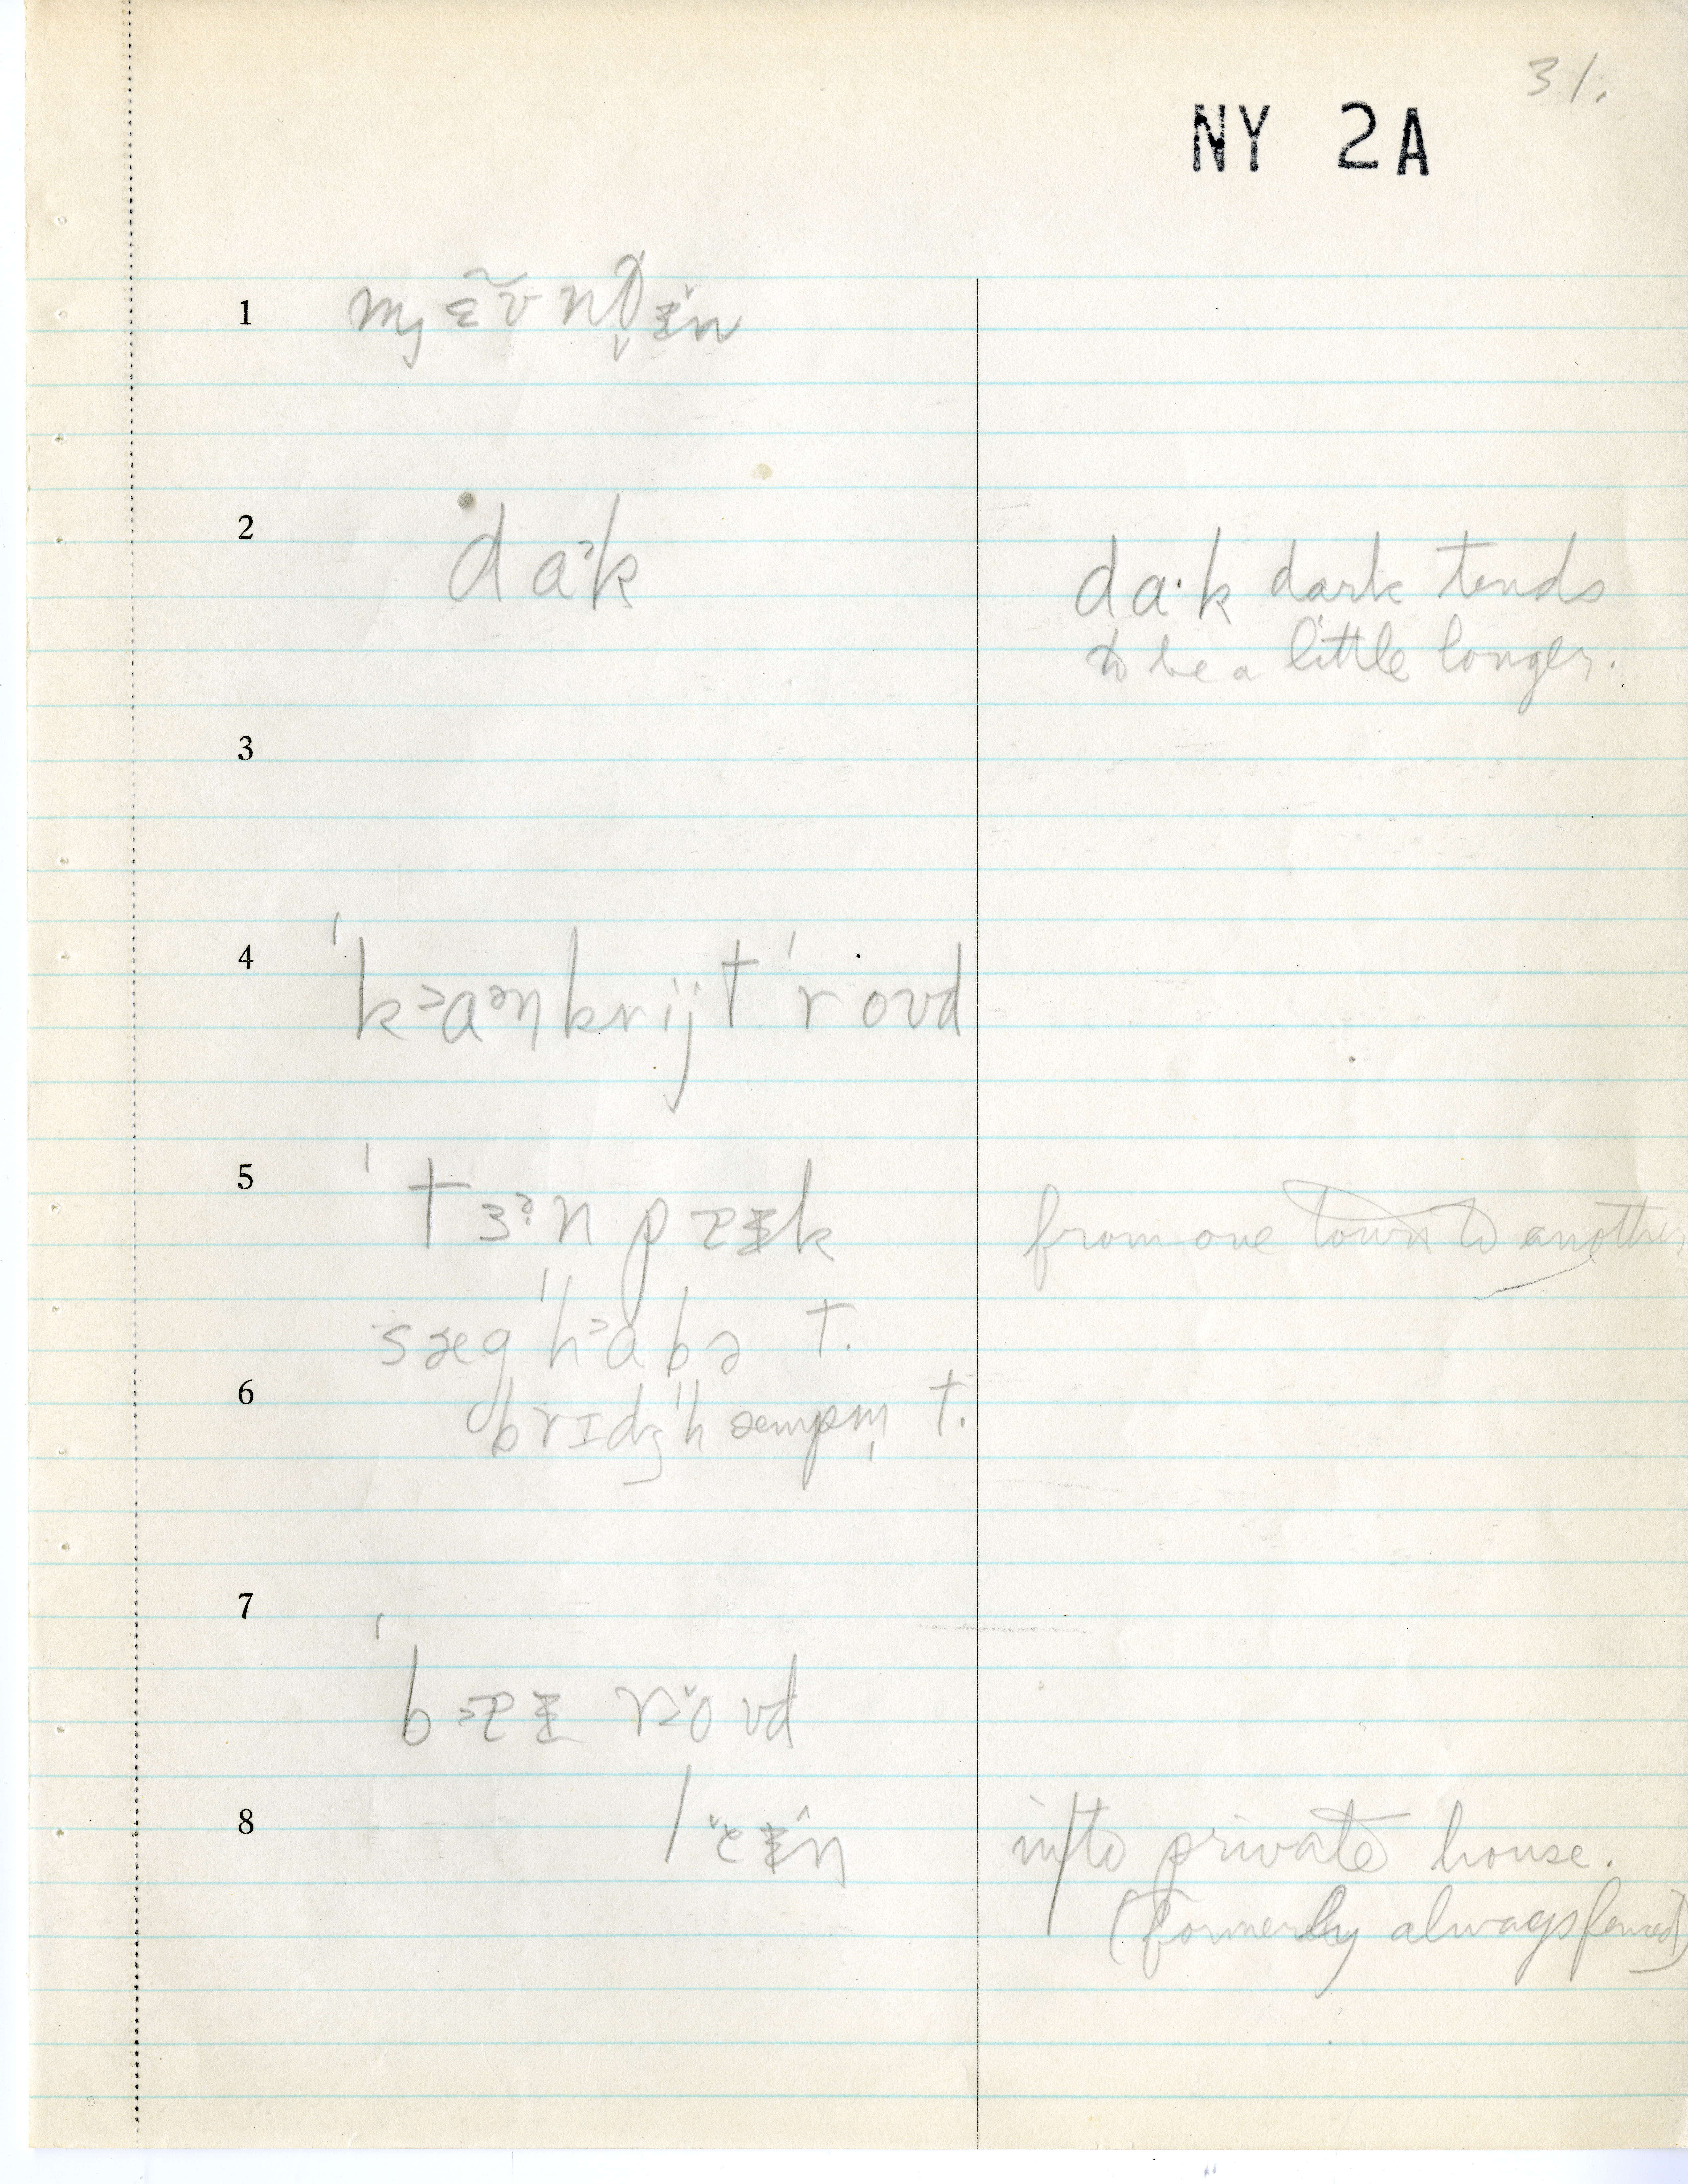 31.
NY 2A
1
2 daᵊk da·k dark tends
to be a little longer.
3
4 ˈkᵊaᵊnkrijt ˈroʊd
5 ˈtɜᵊn pɐɪk from one town to another
sæg ˈhᵊabə t.
6 brɪdʒ ˈhæmpm̩ t.
7
ˈbᵊɐɪ rᵊoʊd
8 lɐɪn into private house.
(formerly always fenced)